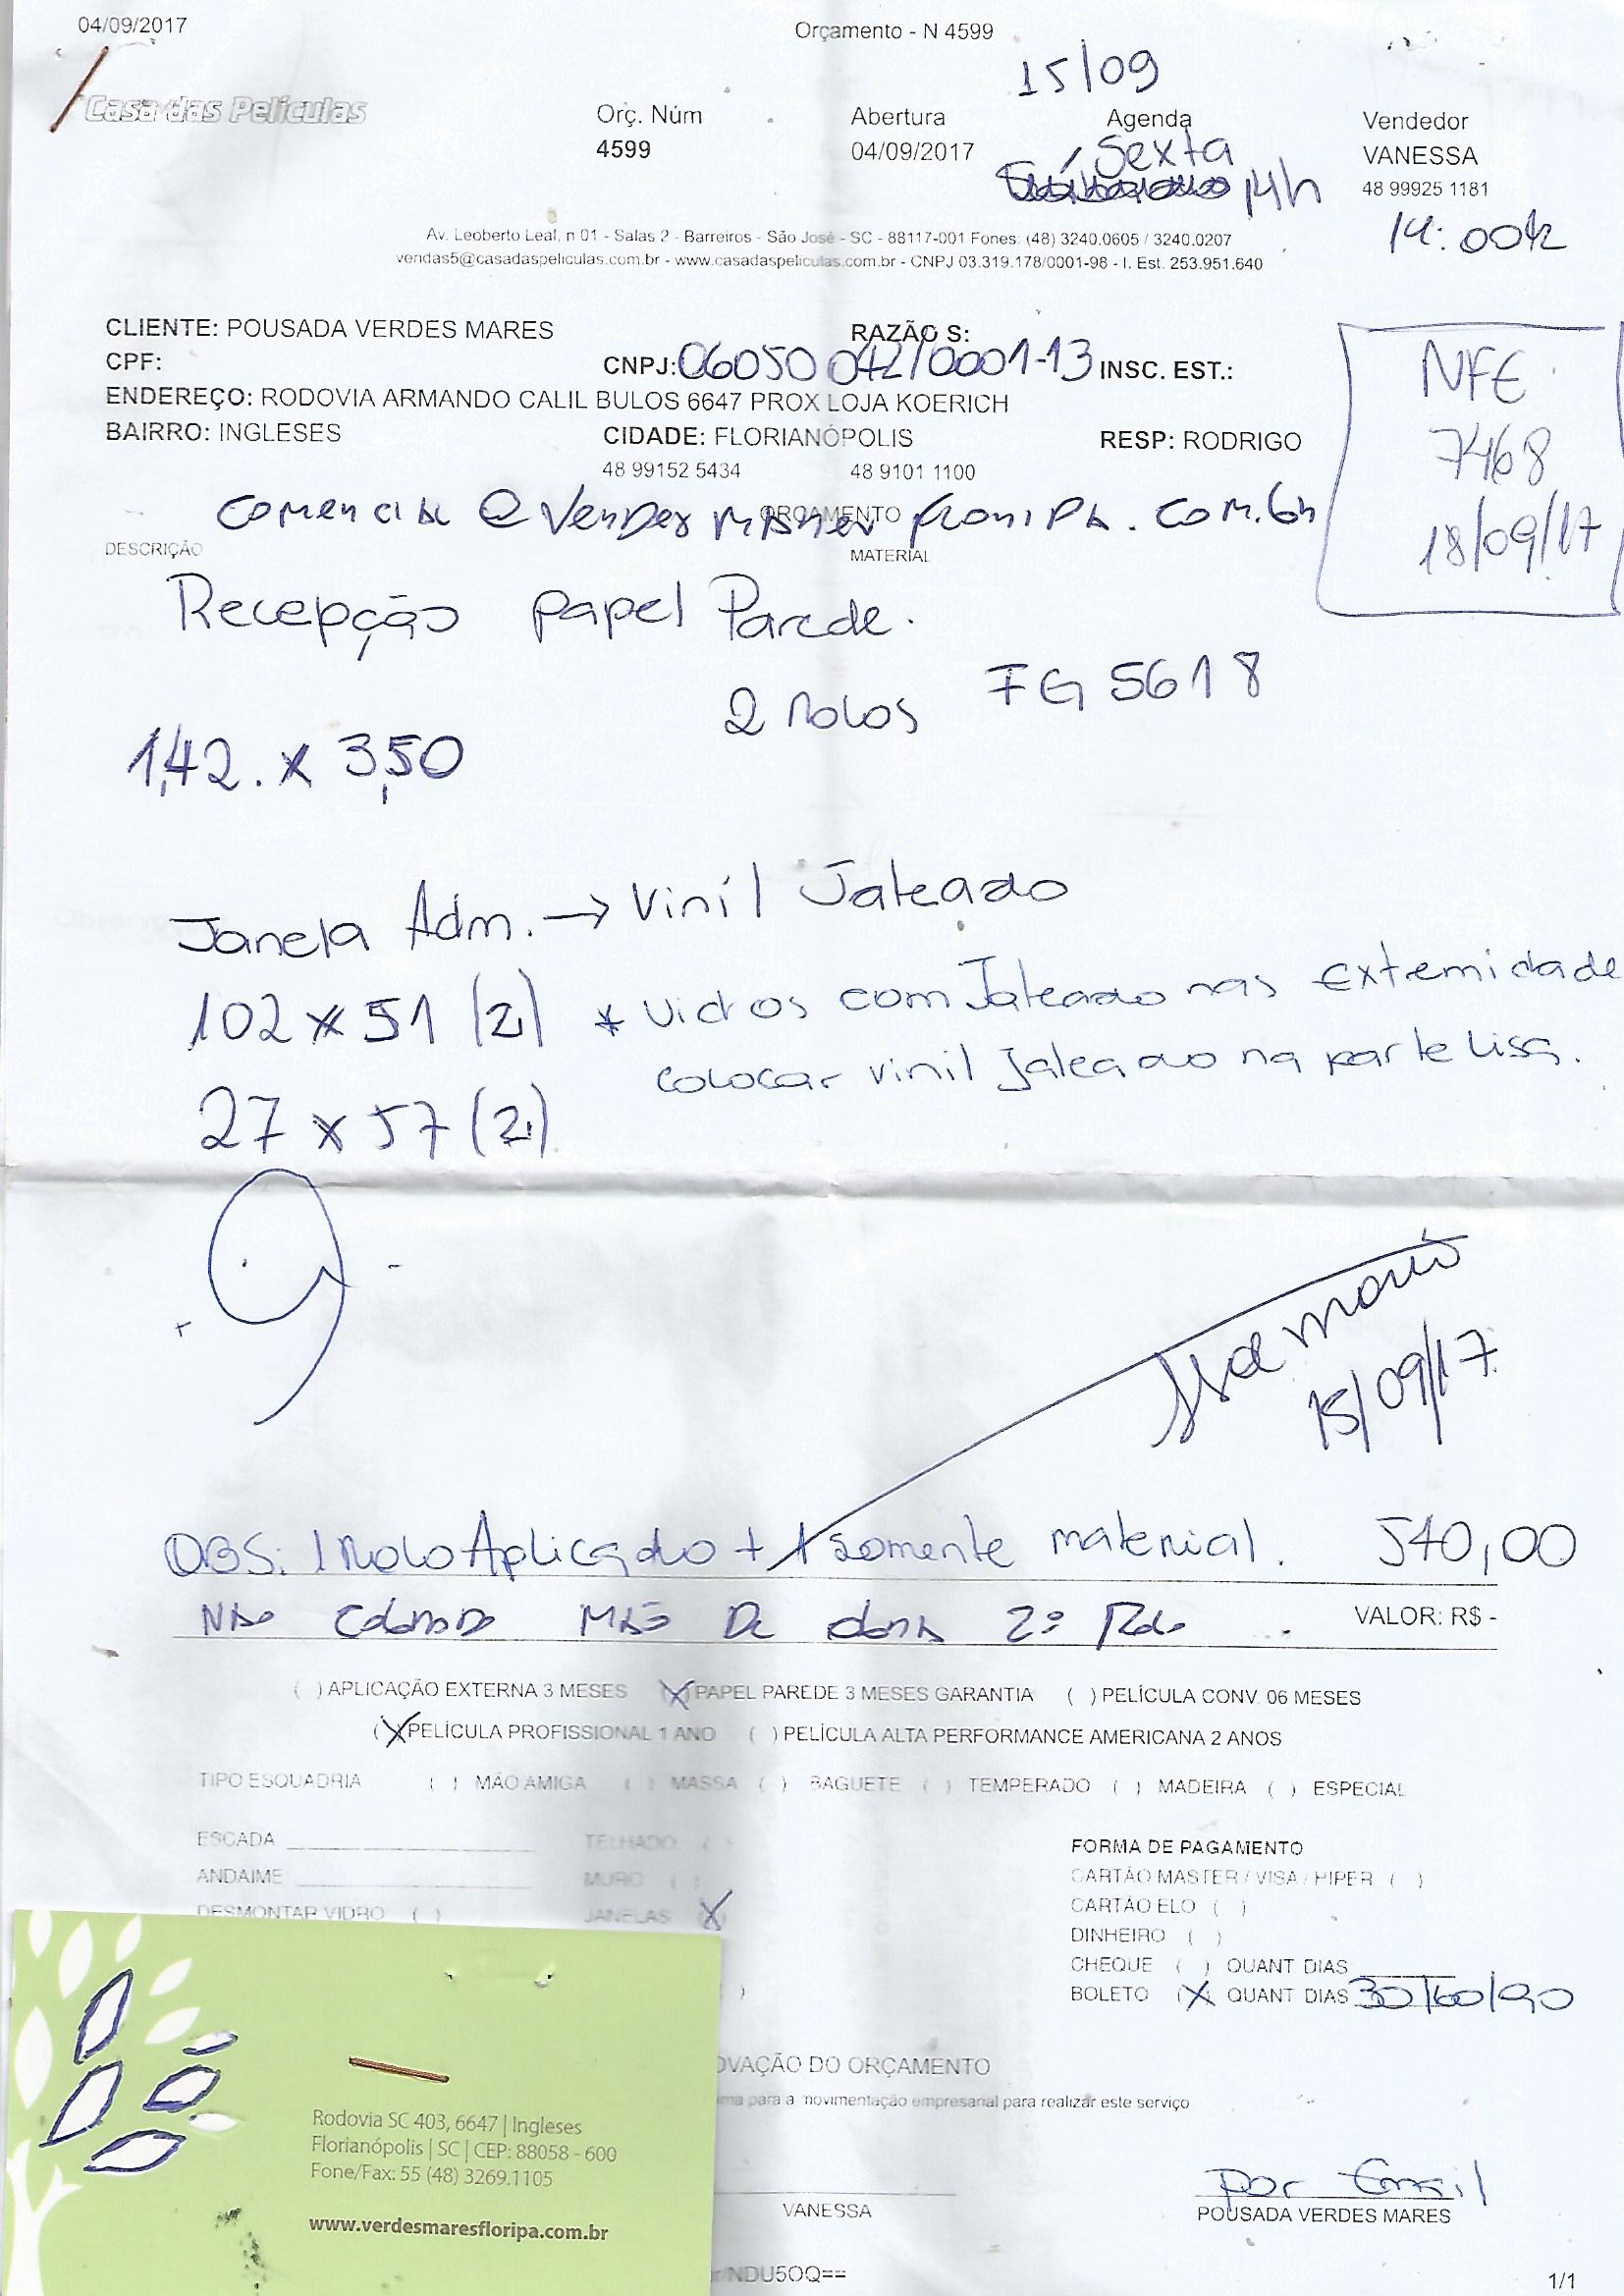 04/09/2017 Orçamento - N 4599
15/09
Casa das Películas Orç. Núm Abertura Agenda Vendedor
4599 04/09/2017 Sexta VANESSA
14h 48 99925 1181
14:00h
Av. Leoberto Leal, n 01 - Salas 2 - Barreiros - São José - SC - 88117-001 Fones: (48) 3240.0605 / 3240.0207
vendas5@casadaspeliculas.com.br - www.casadaspeliculas.com.br - CNPJ 03.319.178/0001-98 - I. Est. 253.951.640
CLIENTE: POUSADA VERDES MARES RAZÃO S:
CPF: CNPJ: 06050042/0001-13 INSC. EST.:
ENDEREÇO: RODOVIA ARMANDO CALIL BULOS 6647 PROX LOJA KOERICH
BAIRRO: INGLESES CIDADE: FLORIANÓPOLIS RESP: RODRIGO
48 99152 5434 48 9101 1100
NFE
7468
18/09/17
ORÇAMENTO
comercial@verdesmaresfloripa.com.br
DESCRIÇÃO MATERIAL
Recepção papel Parede.
2 rolos FG 5618
1,42. x 3,50
Janela Adm. → Vinil Jateado
102 x 51 (2) * vidros com Jateado nas extemidade
colocar vinil Jateado na parte lisa.
27 x 57 (2)
15/09/17
OBS: 1 rolo Aplicado + 1 somente material. 540,00
Não cobrado mão de obra 2º Rolo VALOR: R$ -
( ) APLICAÇÃO EXTERNA 3 MESES (X) PAPEL PAREDE 3 MESES GARANTIA ( ) PELÍCULA CONV. 06 MESES
(X) PELÍCULA PROFISSIONAL 1 ANO ( ) PELÍCULA ALTA PERFORMANCE AMERICANA 2 ANOS
TIPO ESQUADRIA ( ) MÃO AMIGA ( ) MASSA ( ) BAGUETE ( ) TEMPERADO ( ) MADEIRA ( ) ESPECIAL
ESCADA TELHADO ( )
ANDAIME MURO ( )
DESMONTAR VIDRO ( ) JANELAS (X)
FORMA DE PAGAMENTO
CARTÃO MASTER / VISA / HIPER ( )
CARTÃO ELO ( )
DINHEIRO ( )
CHEQUE ( ) QUANT DIAS
BOLETO (X) QUANT DIAS 30/60/90
OVAÇÃO DO ORÇAMENTO
ma para a movimentação empresarial para realizar este serviço
Rodovia SC 403, 6647 | Ingleses
Florianópolis | SC | CEP: 88058 - 600
Fone/Fax: 55 (48) 3269.1105
www.verdesmaresfloripa.com.br
por Email
VANESSA POUSADA VERDES MARES
/NDU5OQ== 1/1